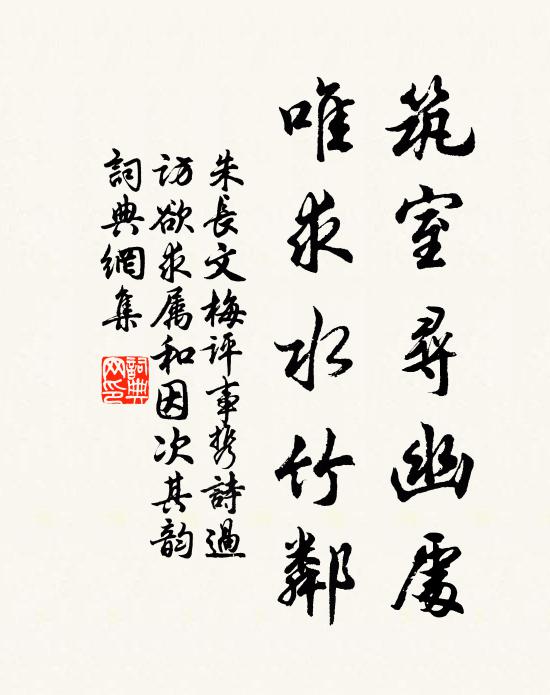 筑室尋幽處
唯求水竹鄰
朱長文梅評事携詩過
访欲求属和因次其韵
詞典網集
詞典網印